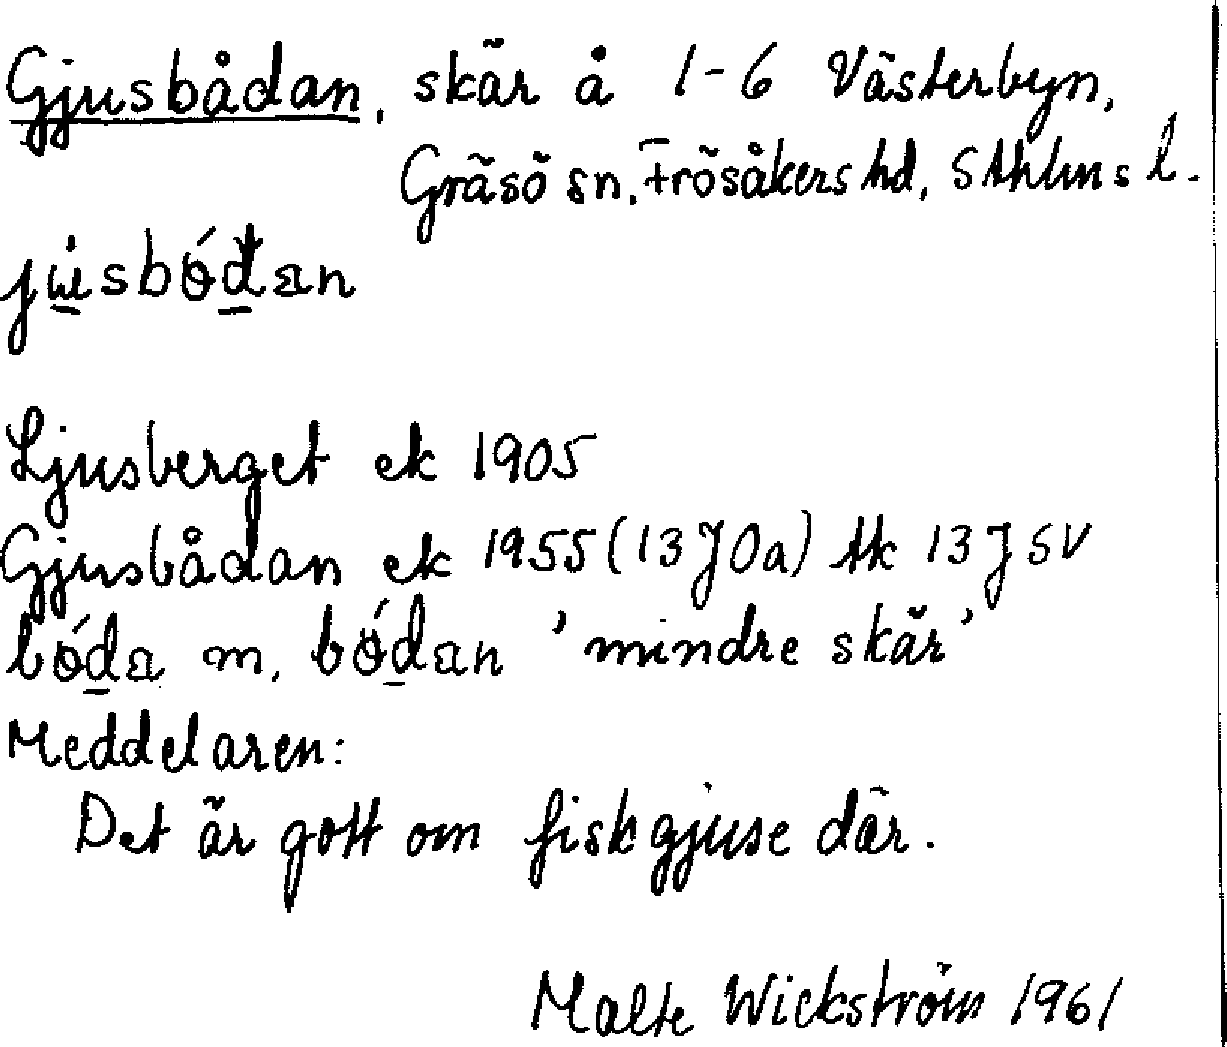 Gjusbådan, skär å 1-6 Västerbyn,
Gräsö sn, Frösåkers hd, Sthlms l.
Ljusberget ek 1905
Gjusbådan ek 1955 (13 J 0a) tk 13 J SV
m, 'mindre skär'
Meddelaren:
Det är gott om fiskgjuse där.
Malte Wickström 1961